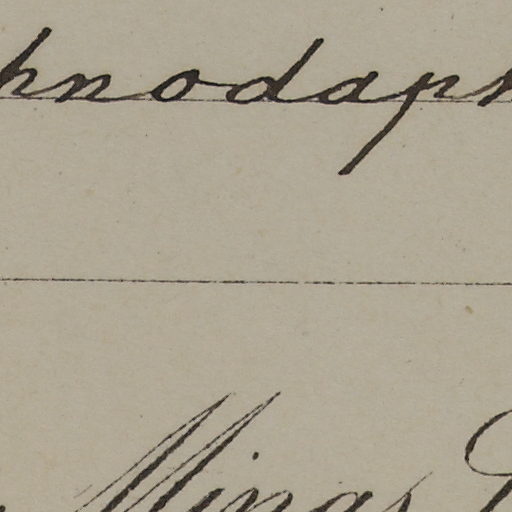 hnodaph
Minas